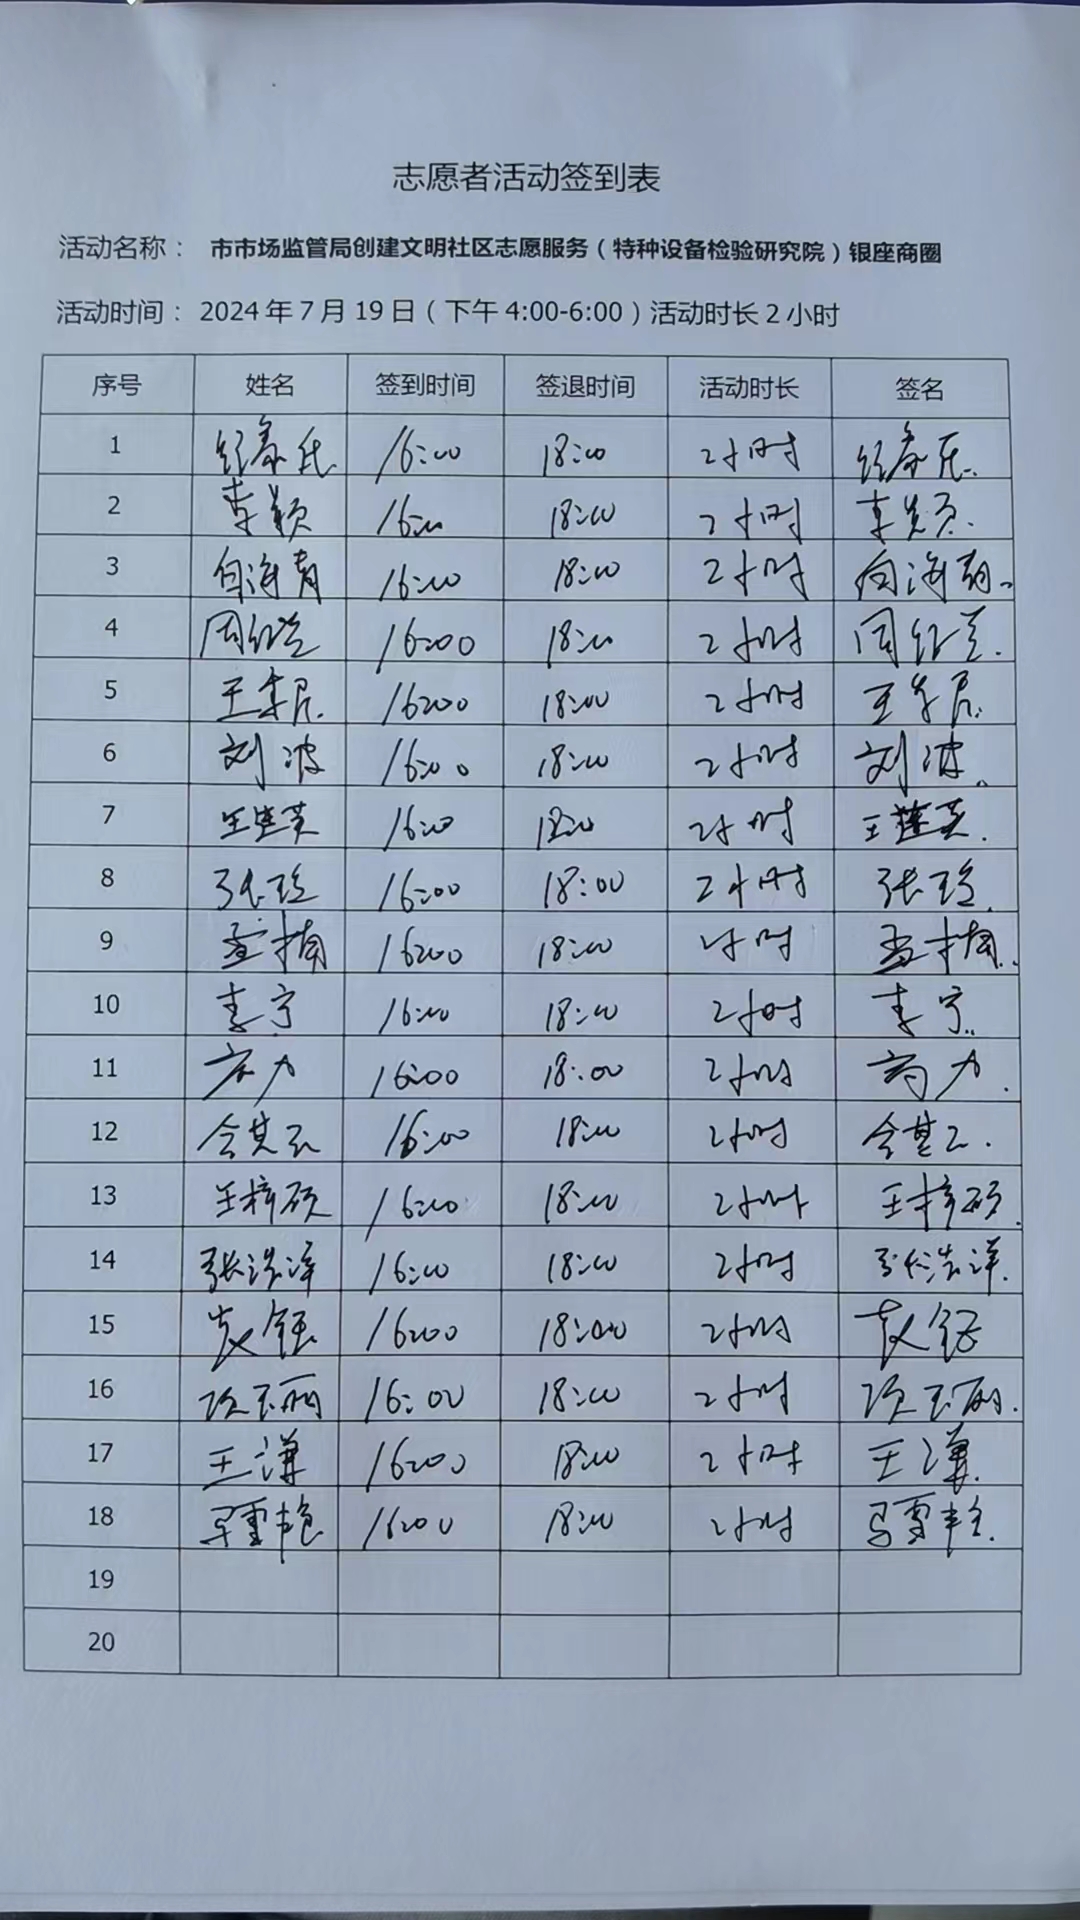 志愿者活动签到表
活动名称： 市市场监管局创建文明社区志愿服务（特种设备检验研究院）银座商圈
活动时间： 2024年7月19日（下午4:00-6:00）活动时长2小时
序号 姓名 签到时间 签退时间 活动时长 签名
1 16:00 18:00 2小时
2 李颖 16:00 18:00 2小时 李颖
3 16:00 18:00 2小时
4 周红兰 16:00 18:00 2小时 周红兰
5 16:00 18:00 2小时
6 刘波 16:00 18:00 2小时 刘波
7 王莲英 16:00 18:00 2小时 王莲英
8 张玲 16:00 18:00 2小时 张玲
9 孟楠 16:00 18:00 2小时 孟楠
10 李宁 16:00 18:00 2小时 李宁
11 16:00 18:00 2小时
12 16:00 18:00 2小时
13 王梓硕 16:00 18:00 2小时 王梓硕
14 张浩洋 16:00 18:00 2小时 张浩洋
15 16:00 18:00 2小时
16 16:00 18:00 2小时
17 王谦 16:00 18:00 2小时 王谦
18 马雪艳 16:00 18:00 2小时 马雪艳
19
20